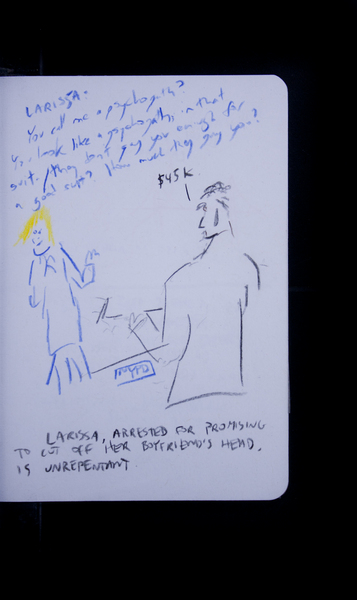 LARISSA:
You call me a psychopath?
You look like a psychopath, in that
suit. They don't pay you enough for
a good suit? How much they pay you?
$45K
LARISSA, ARRESTED FOR PROMISING
TO CUT OFF HER BOYFRIEND'S HEAD,
IS UNREPENTANT.